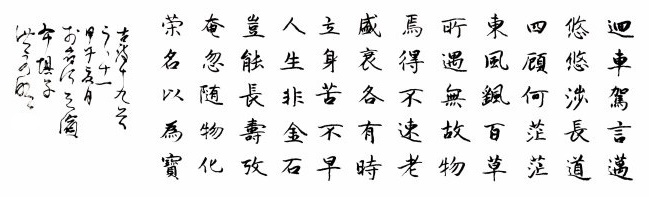 迴車駕言邁
悠悠涉長道
四顧何茫茫
東風颻百草
所遇無故物
焉得不速老
盛衰各有時
立身苦不早
人生非金石
豈能長壽攷
奄忽随物化
荣名以為寶
古诗十九首
之十一
甲午夏月